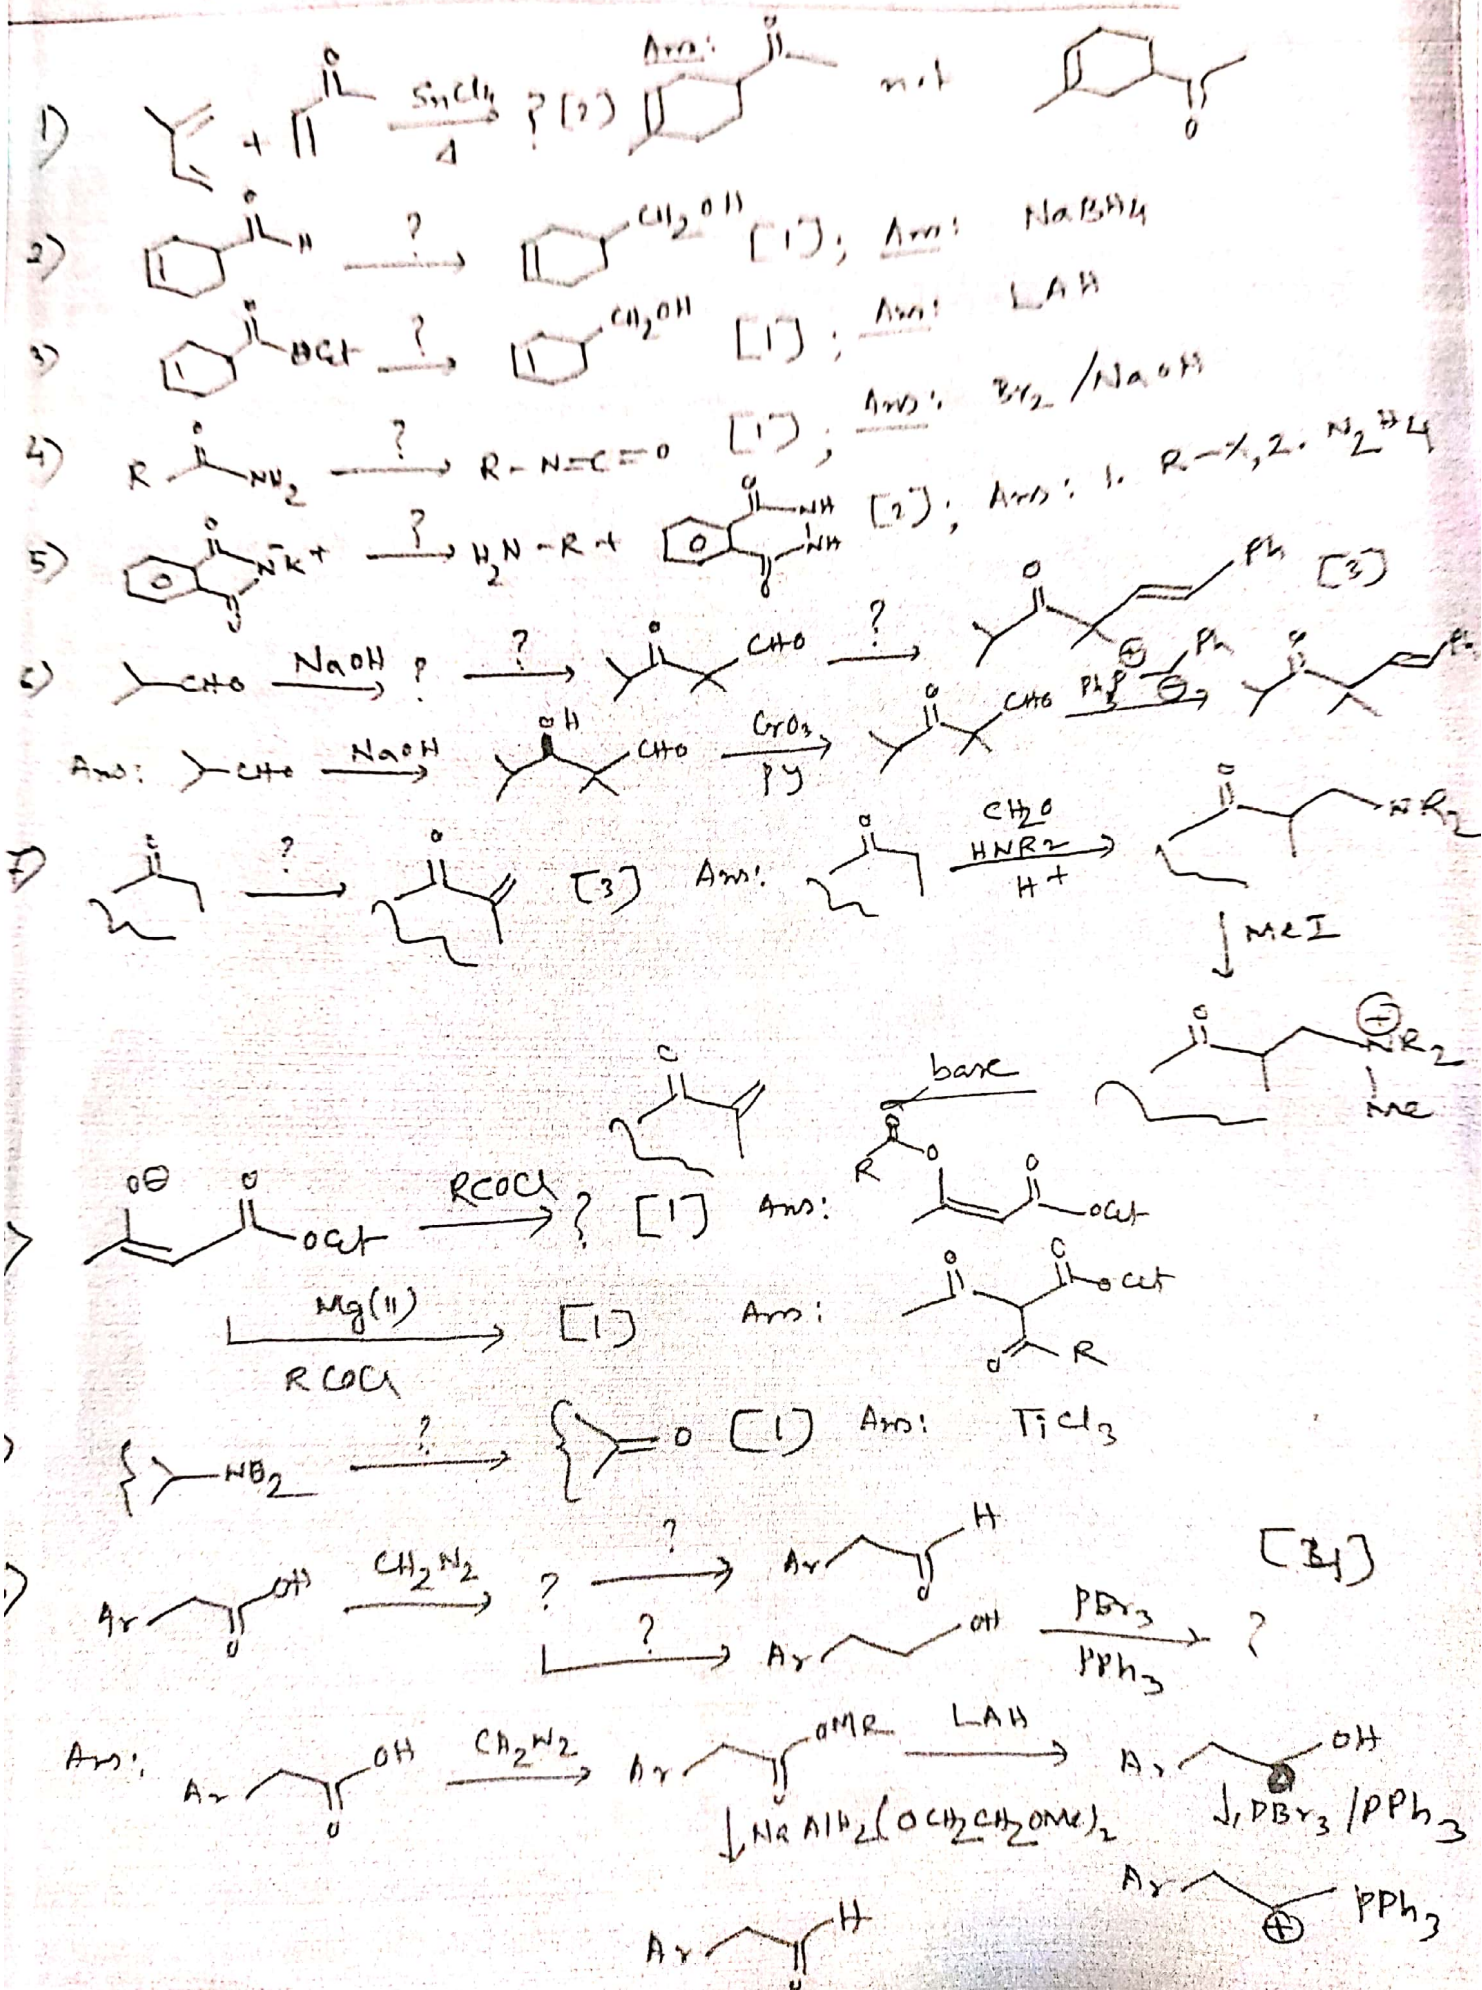 1) + O SnCl4 Δ ? [2] Ans: O not O
2) O H ? CH2OH [1]; Ans: NaBH4
3) O OEt ? CH2OH [1]; Ans: LAH
4) R O NH2 ? R-N=C=O [1]; Ans: Br2/NaOH
5) O N K+ O ? H2N-R + O NH NH O [2]; Ans: 1. R-X, 2. N2H4
6) CHO NaOH ? ? O CHO ? O Ph [3]
Ans: CHO NaOH OH CHO CrO3 PY O CHO Ph3P ⊕ ⊖ Ph O Ph
7) O ? O [3] Ans: O CH2O HNR2 H+ O NR2
MeI
O base O ⊕ NR2 Me
O⊖ O OEt RCOCl ? [1] Ans: R O O O OEt
Mg(II) RCOCl [1] Ans: O O OEt O R
NO2 ? O [1] Ans: TiCl3
Ar OH O CH2N2 ? ? Ar H O
? Ar OH PBr3 PPh3 ?
Ans: Ar OH O CH2N2 Ar OMe O LAH Ar OH
NaAlH2(OCH2CH2OMe)2 PBr3/PPh3
Ar H O Ar ⊕ PPh3